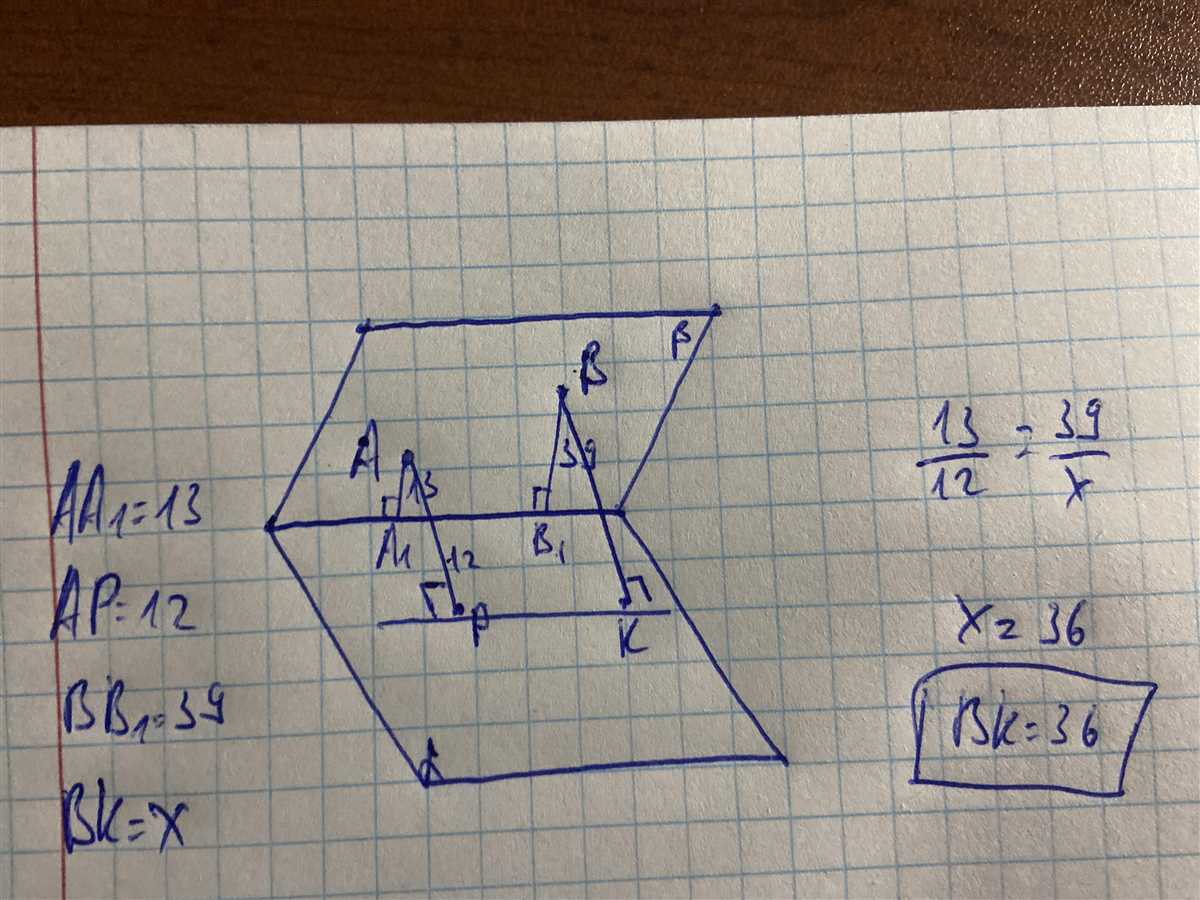 AA₁=13
AP=12
BB₁=39
BK=x
β
B
A
39
13
A₁
B₁
12
P
K
α
13/12 = 39/x
x=36
BK=36